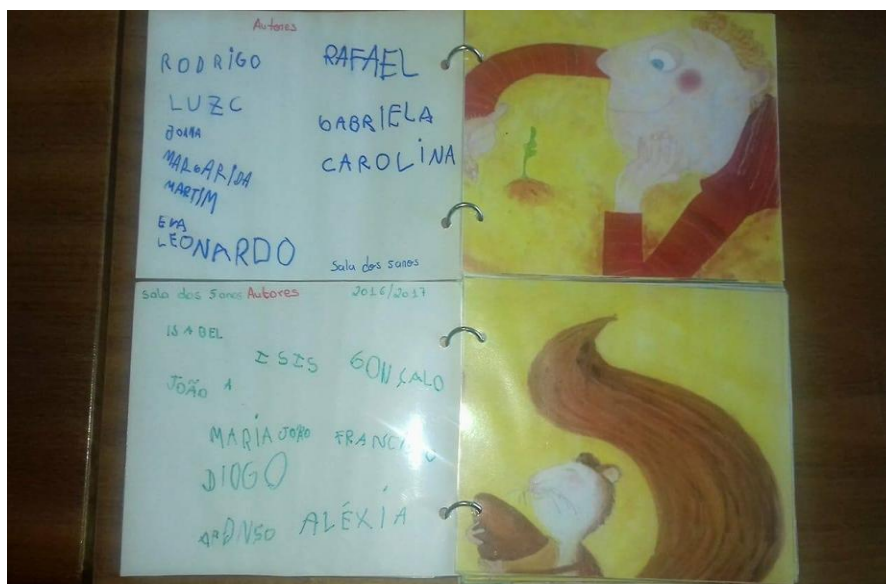 Autores
RODRIGO
LUZC
JOANA
MARGARIDA
MARTIM
EVA
LEONARDO
RAFAEL
GABRIELA
CAROLINA
Sala dos 5anos
Sala dos 5anos Autores 2016/2017
ISABEL
ISIS GONÇALO
JOÃO A
MARIA JOÃO
DIOGO
AFONSO ALÉXIA